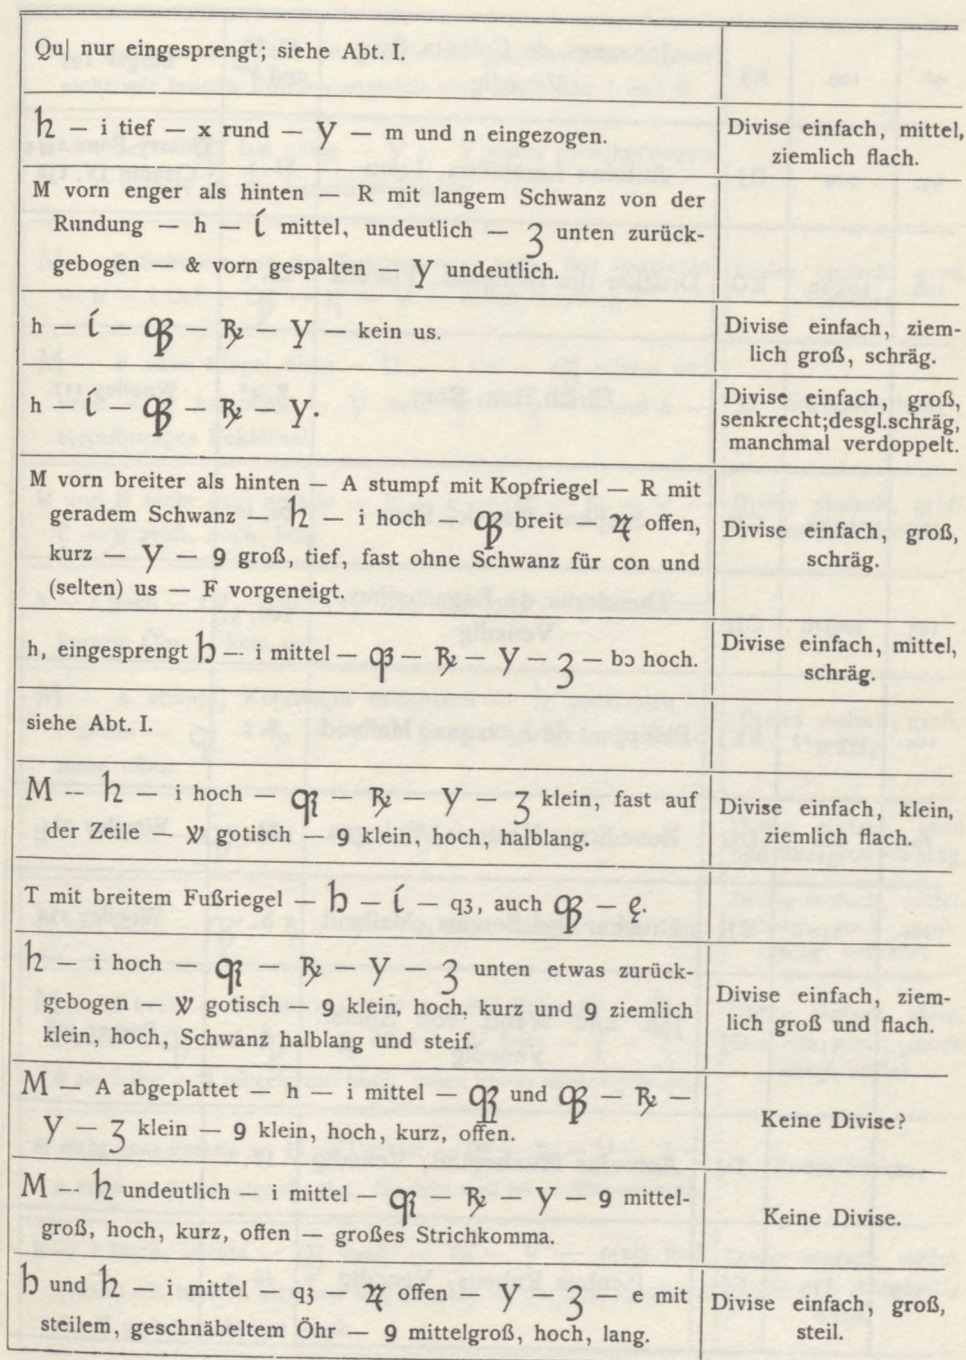 Qu| nur eingesprengt; siehe Abt. I.
h — i tief — x rund — y — m und n eingezogen.
Divise einfach, mittel,
ziemlich flach.
M vorn enger als hinten — R mit langem Schwanz von der
Rundung — h — í mittel, undeutlich — ʒ unten zurück-
gebogen — & vorn gespalten — y undeutlich.
h — í — — ꝶ — y — kein us.
Divise einfach, ziem-
lich groß, schräg.
h — í — — ꝶ — y.
Divise einfach, groß,
senkrecht; desgl. schräg,
manchmal verdoppelt.
M vorn breiter als hinten — A stumpf mit Kopfriegel — R mit
geradem Schwanz — h — i hoch — breit — offen,
kurz — y — 9 groß, tief, fast ohne Schwanz für con und
(selten) us — F vorgeneigt.
Divise einfach, groß,
schräg.
h, eingesprengt h — i mittel — — ꝶ — y — ʒ — bɔ hoch.
Divise einfach, mittel,
schräg.
siehe Abt. I.
M — h — i hoch — — ꝶ — y — ʒ klein, fast auf
der Zeile — gotisch — 9 klein, hoch, halblang.
Divise einfach, klein,
ziemlich flach.
T mit breitem Fußriegel — h — í — qʒ, auch — ę.
h — i hoch — — ꝶ — y — ʒ unten etwas zurück-
gebogen — gotisch — 9 klein, hoch, kurz und 9 ziemlich
klein, hoch, Schwanz halblang und steif.
Divise einfach, ziem-
lich groß und flach.
M — A abgeplattet — h — i mittel — und — ꝶ —
y — ʒ klein — 9 klein, hoch, kurz, offen.
Keine Divise?
M — h undeutlich — i mittel — — ꝶ — y — 9 mittel-
groß, hoch, kurz, offen — großes Strichkomma.
Keine Divise.
h und h — i mittel — qʒ — offen — y — ʒ — e mit
steilem, geschnäbeltem Öhr — 9 mittelgroß, hoch, lang.
Divise einfach, groß,
steil.